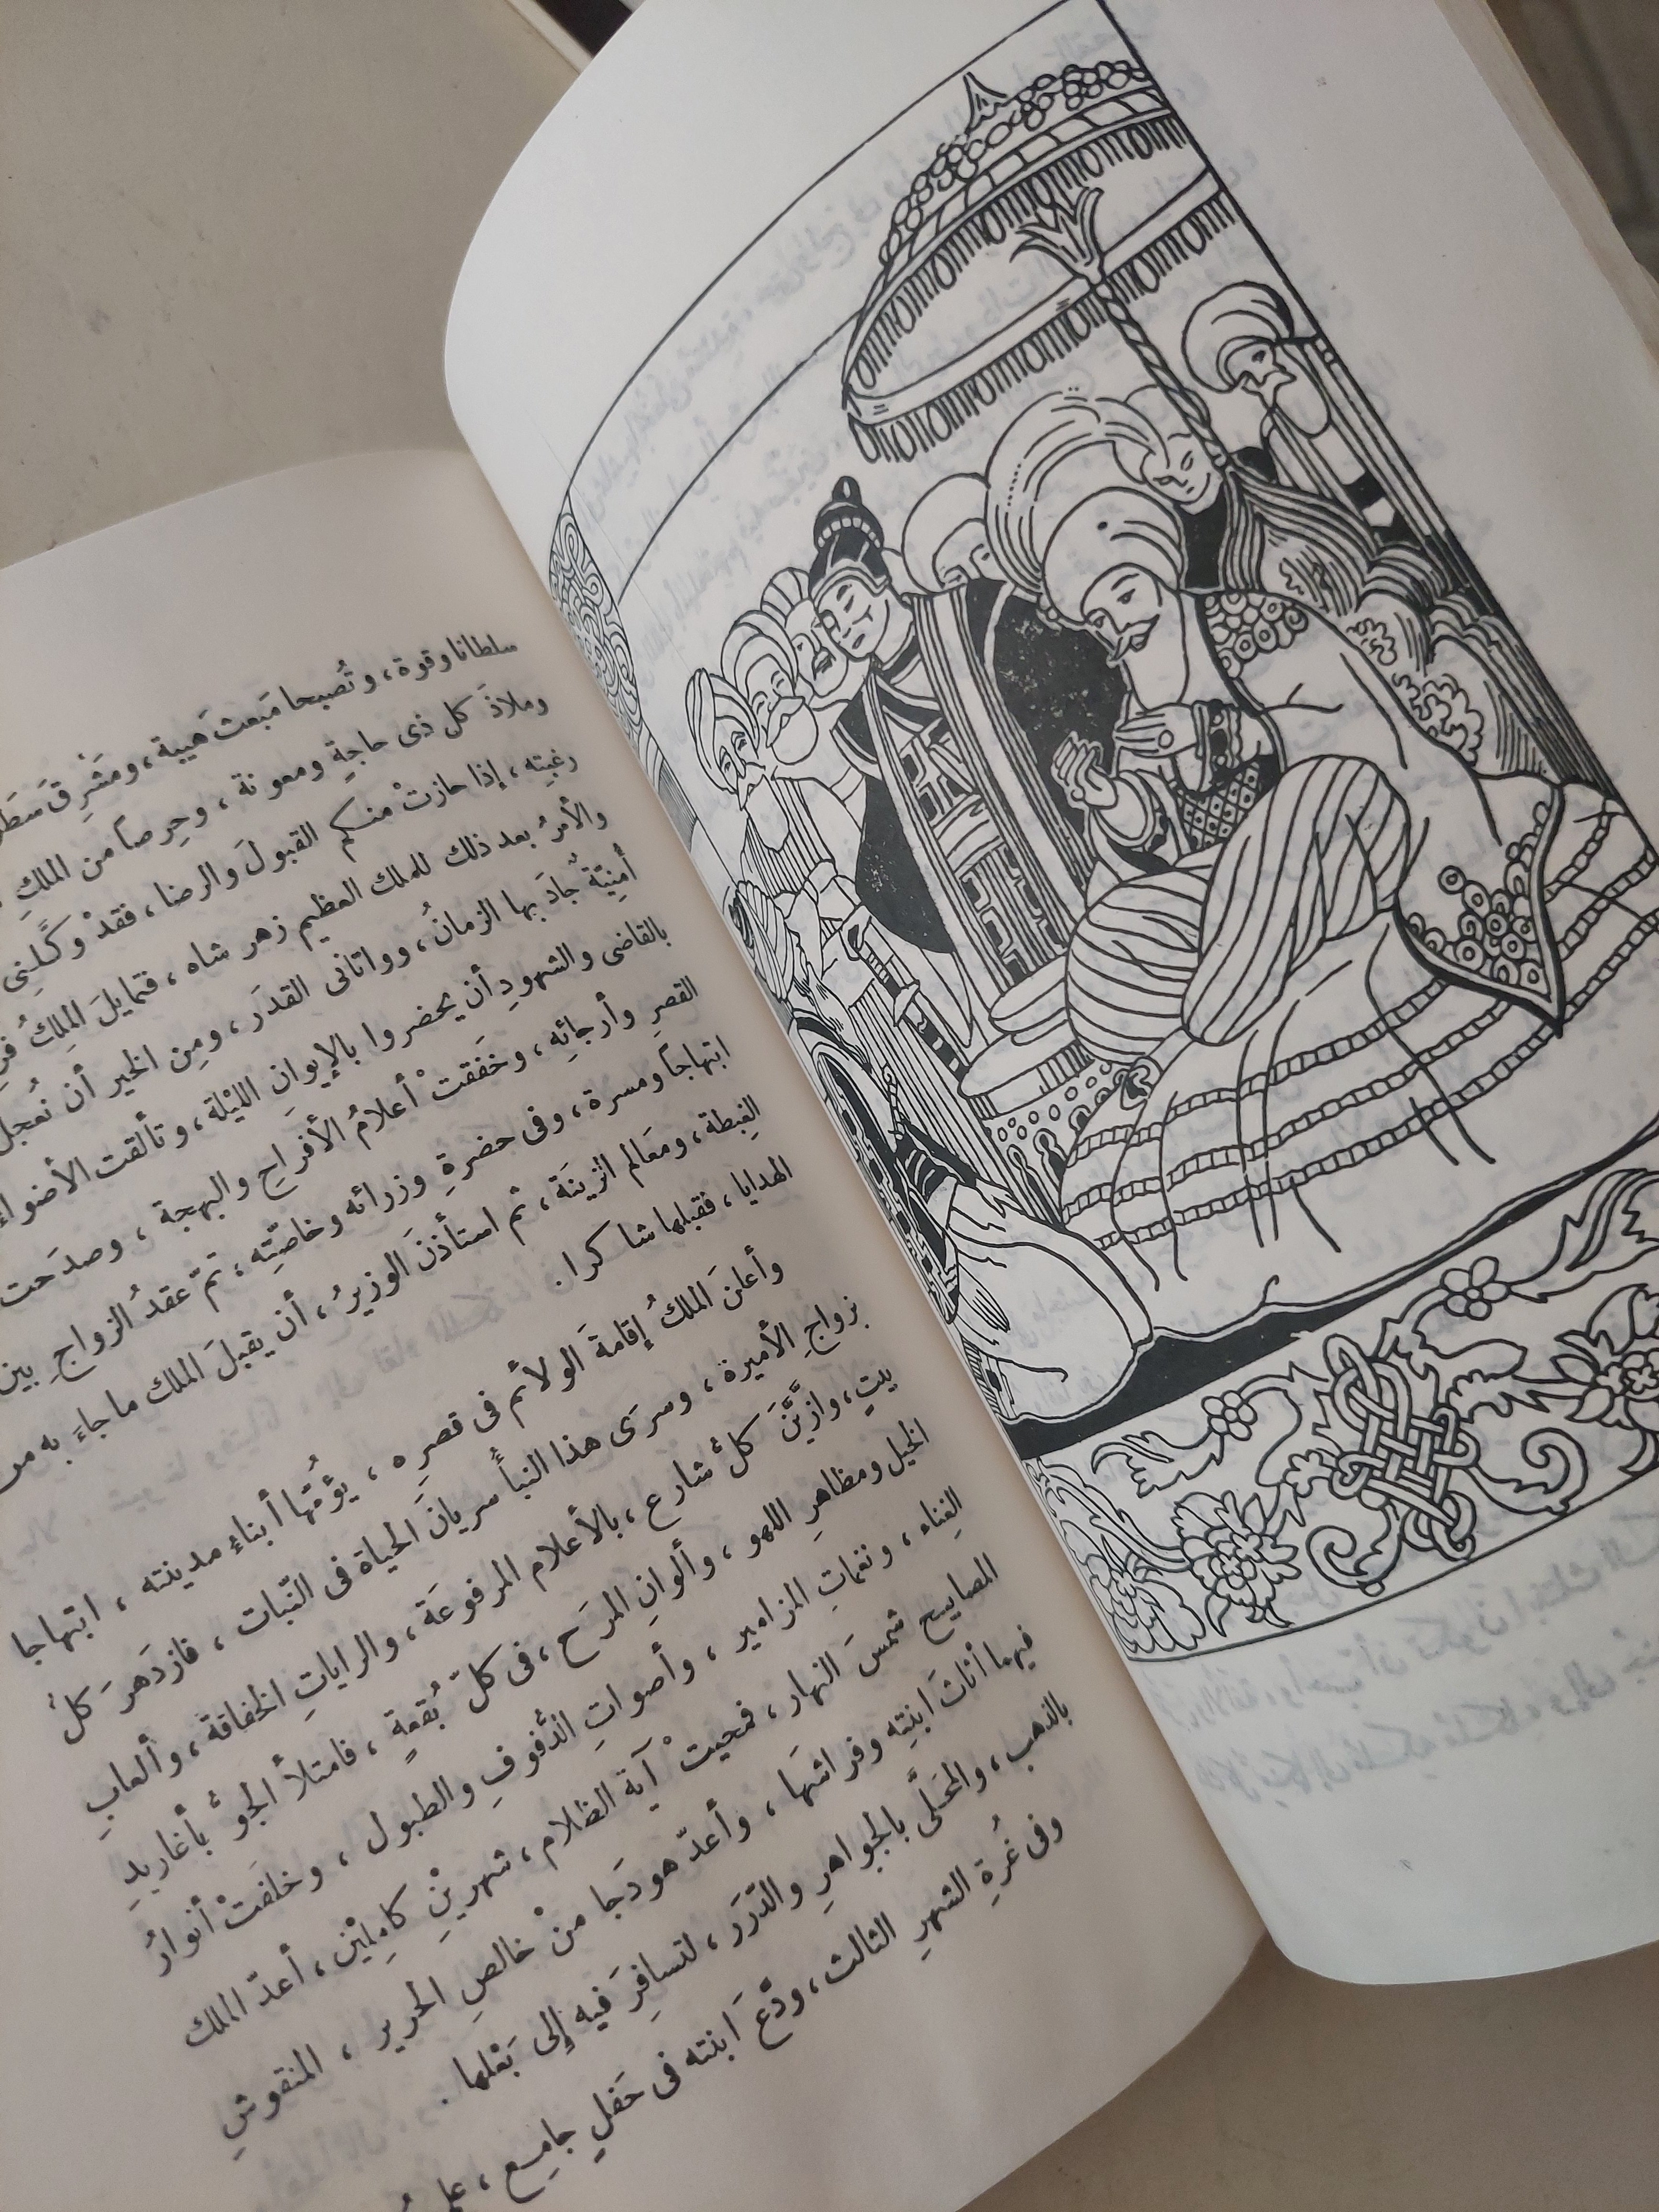 سلطانا وقوة، وتُصبحا مَبعثَ هَيبة، ومَشْرِقَ
وملاذَ كل ذى حاجةٍ ومعونة، وحِرصاً من الملكِ
رغبِته، إذا حازتْ منكم القبولَ والرضا، فقدْ وكَّلنِى
والأمرُ بعد ذلك للملك العظيم زهر شاه، فتمايلَ الملِكُ
أُمنِيّةٌ جادَ بها الزمانُ، وواتانى القدَر، ومِن الخير أن نُعجل
بالقاضى والشهودِ أن يحضروا بالإيوانِ الليْلة، وتألقت الأضواء
القصرِ وأرجائِه، وخَفَقتْ أعلامُ الأفراحِ والبهجة، وصدَحت
ابتهاجاً ومسرة، وفى حضرةِ وزرائه وخاصَّتِه، تمّ عقدُ الزواجِ بين
الغِبطة، ومَعَالم الزينَة، ثم استأذنَ الوزيرُ، أن يقبلَ الملك ما جاءَ به من
الهدايا، فقبلها شاكرا.
وأعلنَ الملكُ إقامةَ الولائم فى قصرِه، يؤمّها أبناء مدينته، ابتهاجا
بزواجِ الأميرة، وسرَى هذا النبأ سريانَ الحياة فى النّبات، فازدَهرَ كلُّ
بيتٍ، وازيَّنَ كلُّ شارع، بالأعلام المرفوعَة، والراياتِ الخفاقة، وألعابِ
الخيل ومظاهرِ اللهو، وألوانِ المرَح، فى كلّ بُقعةٍ، فامتلأ الجوُّ بأغاريدِ
الغِناء، ونغماتِ المزامير، وأصواتِ الدُّفوفِ والطبول، وخلَفَتْ أنوارُ
المصابيح شمسَ النهار، فمحيتْ آية الظلام، شهريْنِ كامِليْن، أعدّ الملك
فيهما أثاثَ ابنتِه وفراشَها، وأعدّ هودَجا منْ خالصِ الحرير، المنقوشِ
بالذهب، والمحَلَّى بالجواهرِ والدّرَر، لتسافرَ فيه إلى بَعْلها.
وفى غُرةِ الشهرِ الثالث، ودَّعَ ابنته فى حَفلٍ جامِع،